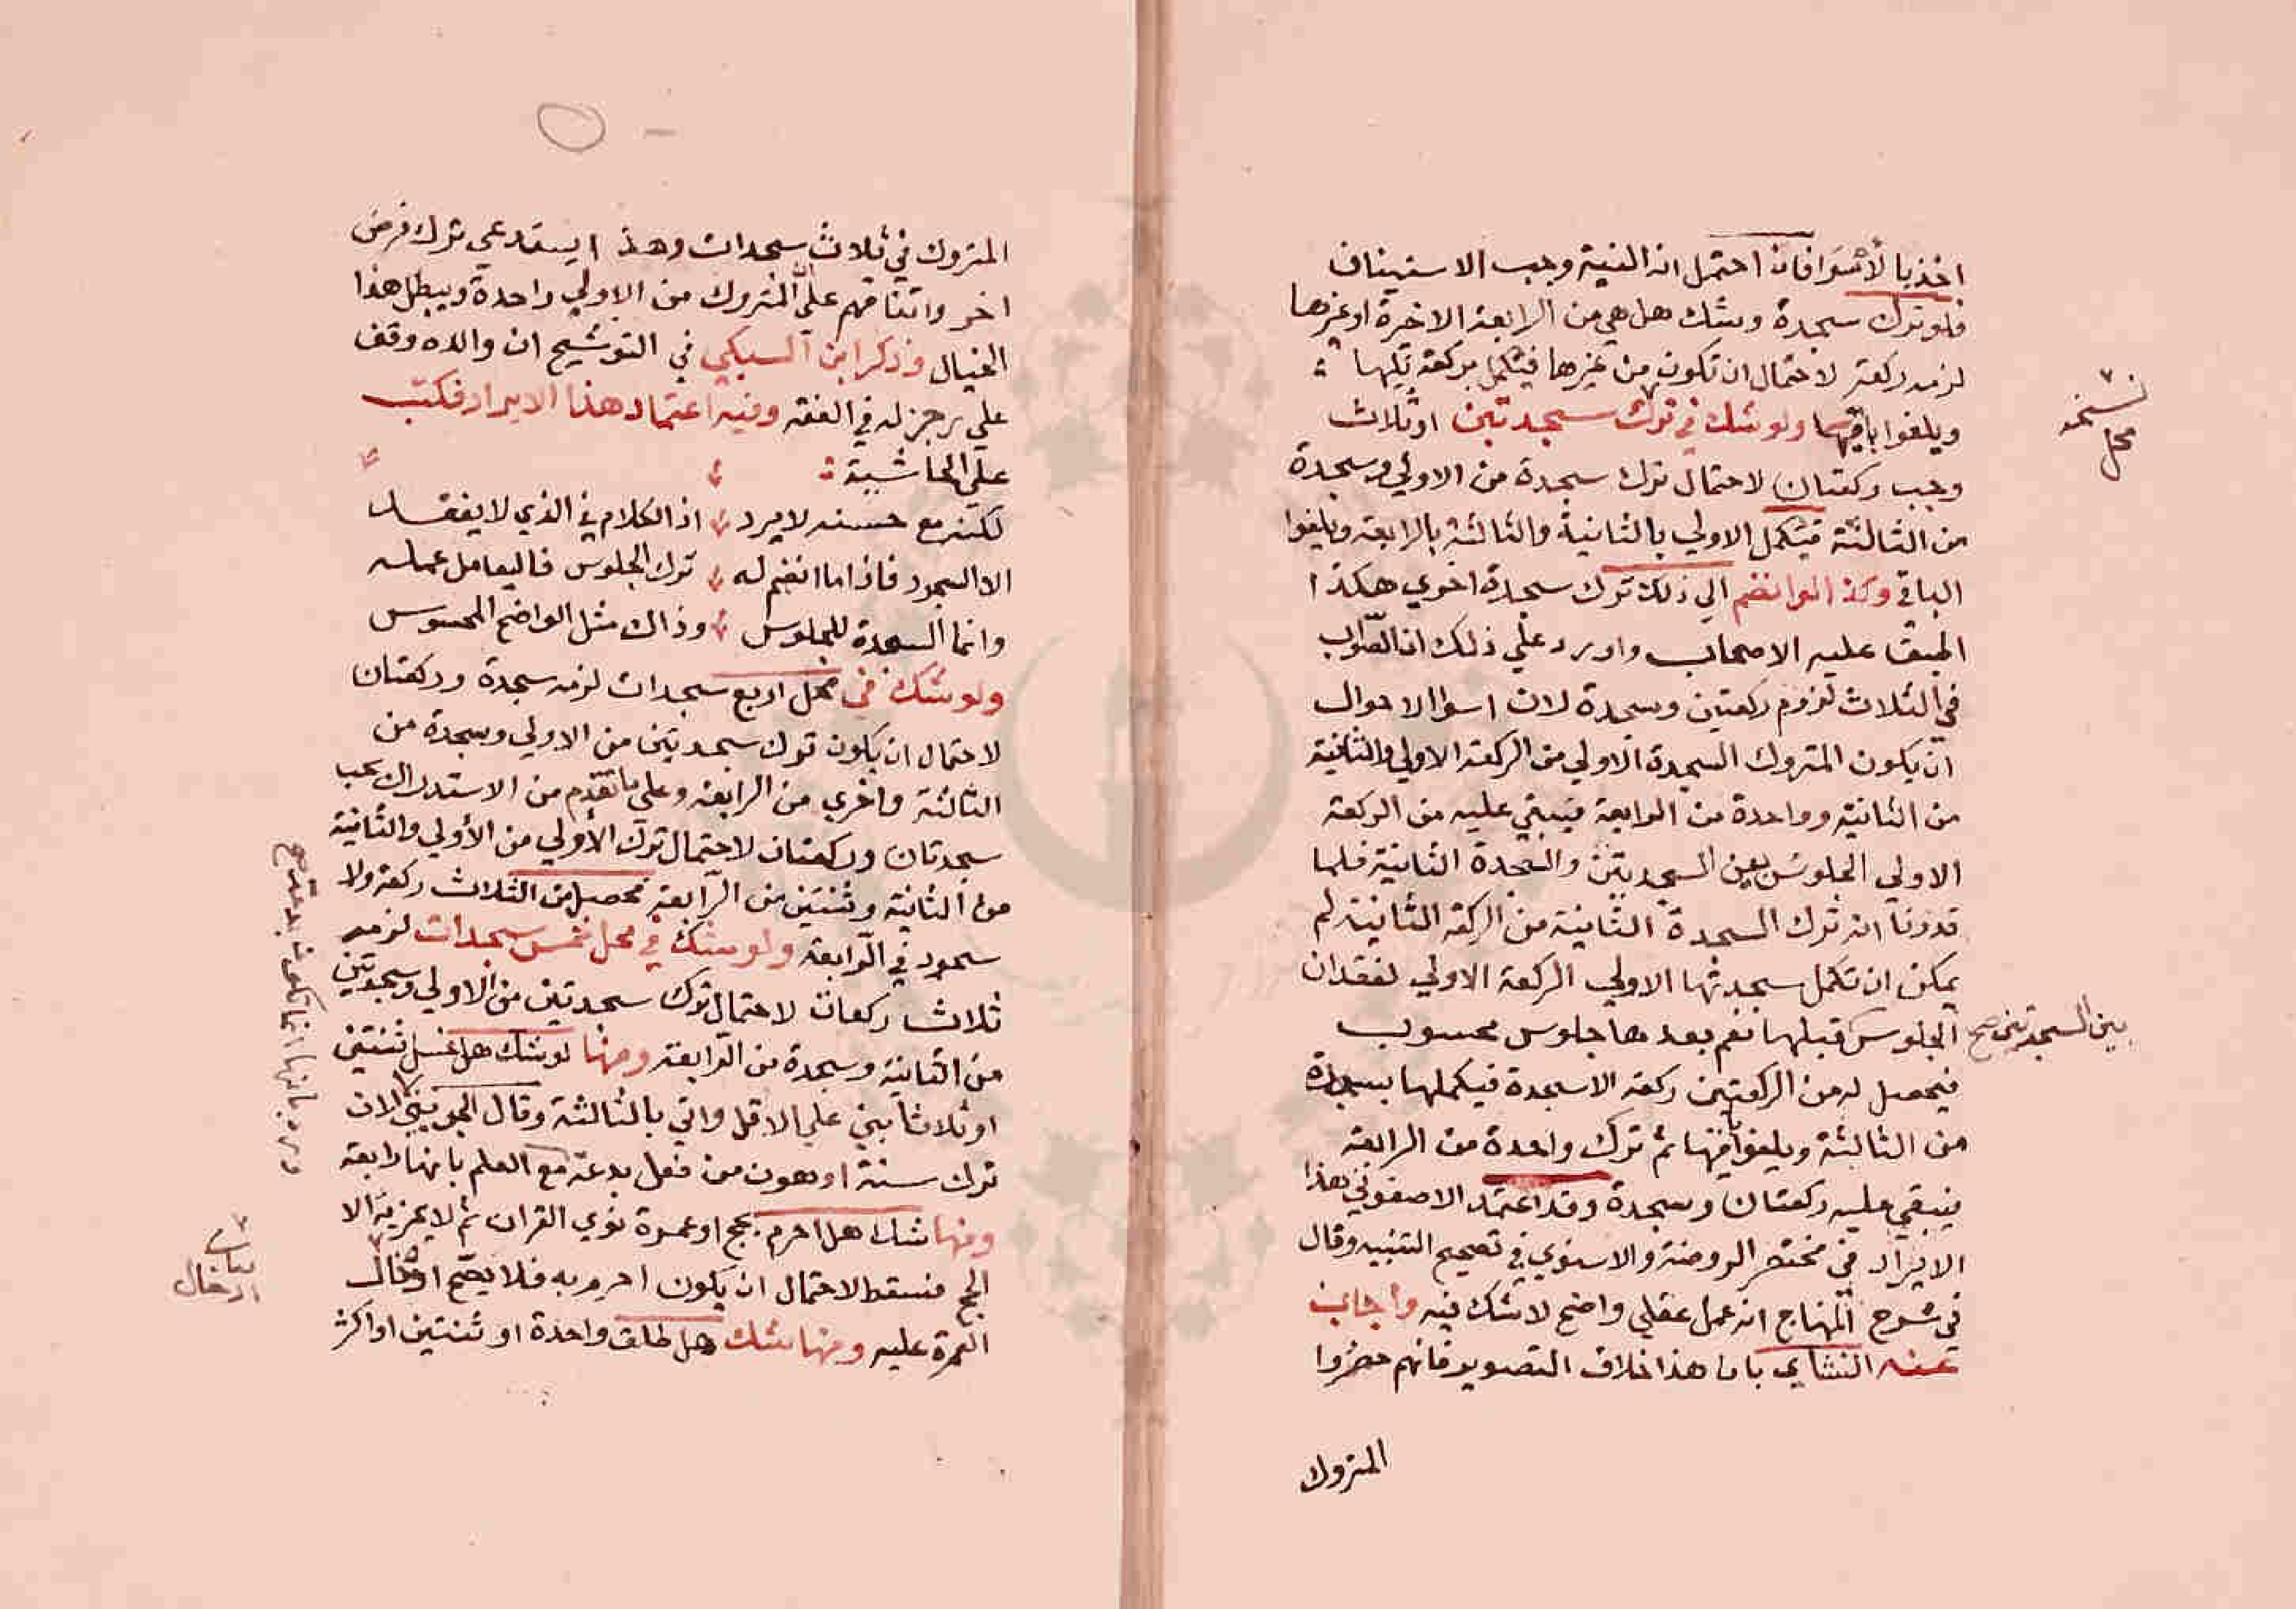 اخذ بالأسوا فان احتمل انه النية وجب الاستيناف
فلو ترك سجدة وشك هل هي من الرابعة الاخيرة او غيرها
لزمه ركعة لاحتمال ان تكون من غيرها فيتكمل بركعة تليها
ويلغوا باقيها ولو شك في ترك سجدتين او ثلاث
نسخه
محل
وجب ركعتان لاحتمال ترك سجدة من الاولي وسجدة
من الثالثة فيتكمل الاولي بالثانية والثالثة بالرابعة ويلغوا
الباقي وكذا لو انضم الي ذلك ترك سجدة اخري هكذا
اطبق عليه الاصحاب واورد علي ذلك ان الصواب
في الثلاث لزوم ركعتين وسجدة لان اسوا الاحوال
ان يكون المتروك السجدة الاولي من الركعة الاولي والثانية
من الثانية وواحدة من الرابعة فيبقي عليه من الركعة
الاولي الجلوس بين السجدتين والسجدة الثانية فلما
قدرنا انه ترك السجدة الثانية من الركعة الثانية لم
يمكن ان تكمل سجدتها الاولي الركعة الاولي لفقدان
الجلوس قبلها نعم بعدها جلوس محسوب
بين السجدتين صح
فيحصل له من الركعتين ركعة الا سجدة فيكملها بسجدة
من الثالثة ويلغوا باقيها ثم ترك واحدة من الرابعة
فيبقي عليه ركعتان وسجدة وقد اعتمد الاصفوني هذا
الايراد في مختصر الروضة والاسنوي في تصحيح التنبيه وقال
في شرح المنهاج انه عمل عقلي واضح لا شك فيه واجاب
عنه النشاي بان هذا خلاف التصوير فانهم حضروا
المتروك
المتروك في ثلاث سجدات وهذا يستدعي ترك فرض
اخر واتفاقهم علي ان المتروك من الاولي واحدة ويبطل هذا
الخيال وذكر ابن السبكي في التوشيح ان والده وقف
علي رجز له في الفقه وفيه اعتماد هذا الايراد فكتب
علي الحاشية
لكنه مع حسنه لا يرد اذ الكلام في الذي لا يفقد
الا السجود فاذا ما انضم له ترك الجلوس فاليعامل عمله
وانما السجدة للجلوس وذاك مثل الواضح المحسوس
ولو شك في محل اربع سجدات لزمه سجدة وركعتان
لاحتمال ان يكون ترك سجدتين من الاولي وسجدة من
الثالثة واخري من الرابعة وعلي ما تقدم من الاستدراك يجب
سجدتان وركعتان لاحتمال ترك الأولي من الأولي والثانية
من الثانية وثنتين من الرابعة فحصل من الثلاث ركعة ولا
سجود في الرابعة ولو شك في محل خمس سجدات لزمه
ثلاث ركعات لاحتمال ترك سجدتين من الاولي وسجدتين
من الثانية وسجدة من الرابعة ومنها لو شك هل غسل ثنتين
او ثلاثا بني علي الاقل واتي بالثالثة وقال الجويني لا لان
ترك سنة اوهون من فعل بدعة مع العلم بانها رابعة
ومنها شك هل احرم بحج او عمرة نوي القران ثم لا يجزيه الا
الحج فسقط لاحتمال ان يكون احرم به فلا يصح ادخال
العمرة عليه ومنها شك هل طلق واحدة او ثنتين او اكثر
ادخال